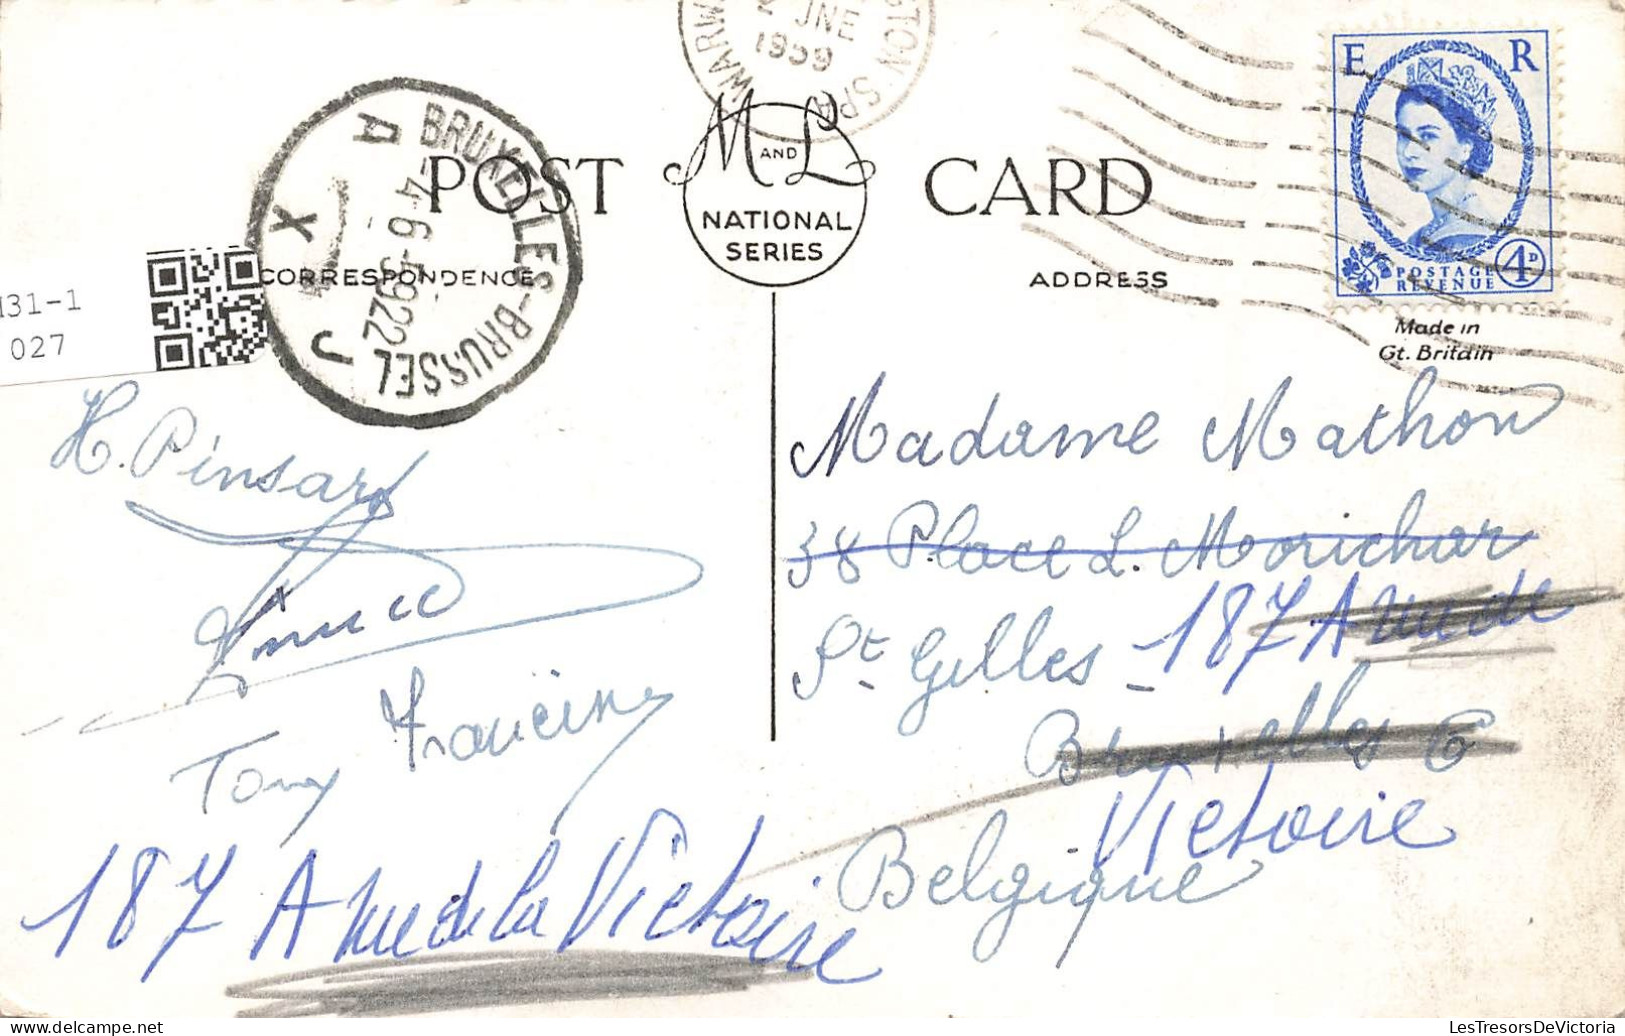 WARW
2 JNE
1959
GTON SPA
BRUXELLES-BRUSSEL
A
-4-6-5922
X
J
E R
POSTAGE
REVENUE
4D
POST
M AND L
NATIONAL
SERIES
CARD
CORRESPONDENCE
ADDRESS
Made in
Gt. Britain
131-1
027
H. Pinsard
Tony
187 A rue de la Victoire
Madame Mathon
38 Place L. Morichar
St Gilles - 187 A rue de
Bruxelles 6
Victoire
Belgique
LesTresorsDeVictoria